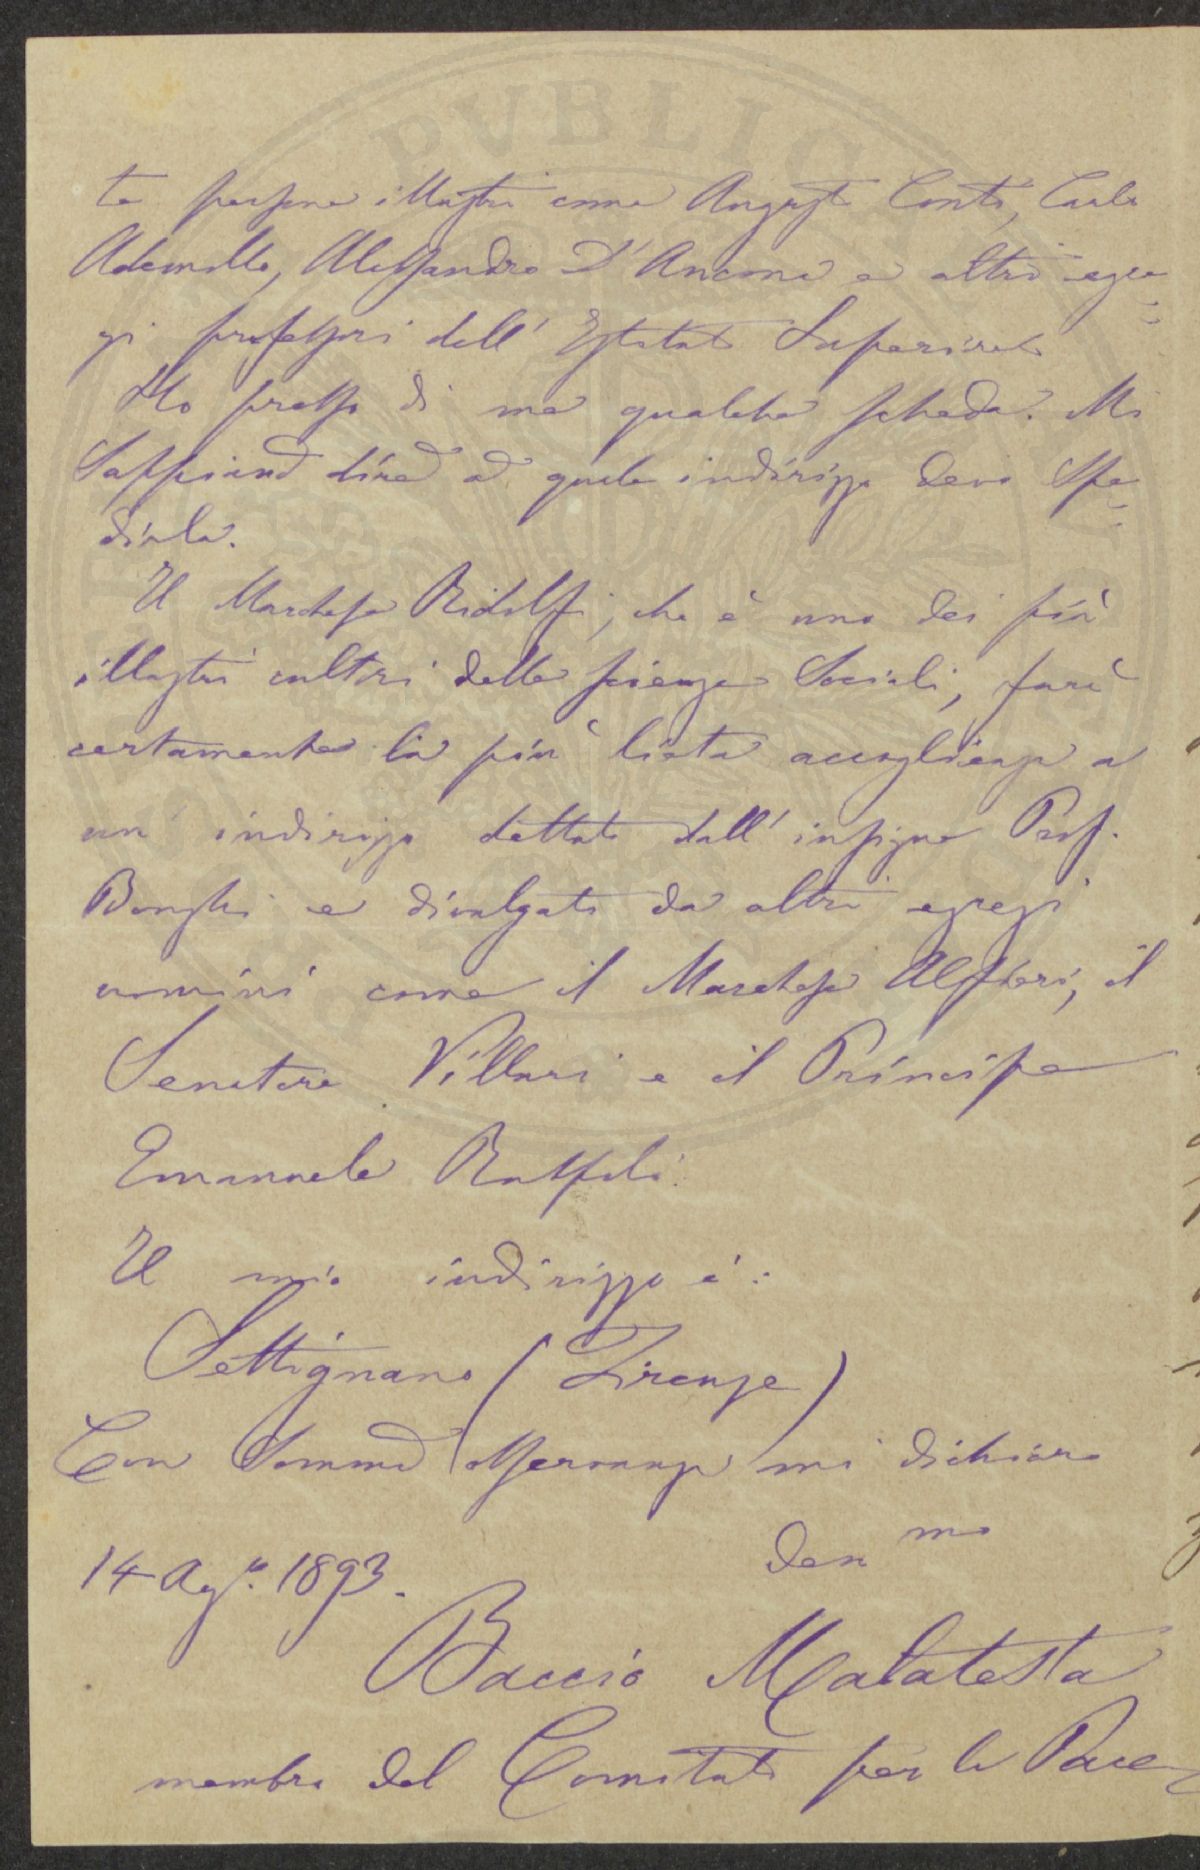 te persone illustri come Augusto Conti, Carlo
Ademollo, Alessandro D'Ancona e altri egre-
gi professori dell' Istituto Superiore
Ho presso di me qualche scheda. Mi
sappiano dire a quale indirizzo devo spe-
dirla.
Il Marchese Ridolfi, che è uno dei più
illustri cultori delle scienze Sociali, farà
certamente la più lieta accoglienza a
un indirizzo dettato dall' insigne Prof.
Bonghi e divulgato da altri egregi
uomini come il Marchese Alfieri, il
Senatore Villari e il Principe
Emanuele Ruspoli.
Il mio indirizzo è:
Settignano (Firenze)
Con somma osservanza mi dichiaro
dev mo
14 Ag.to 1893.
Baccio Malatesta
membro del Comitato per la Pace